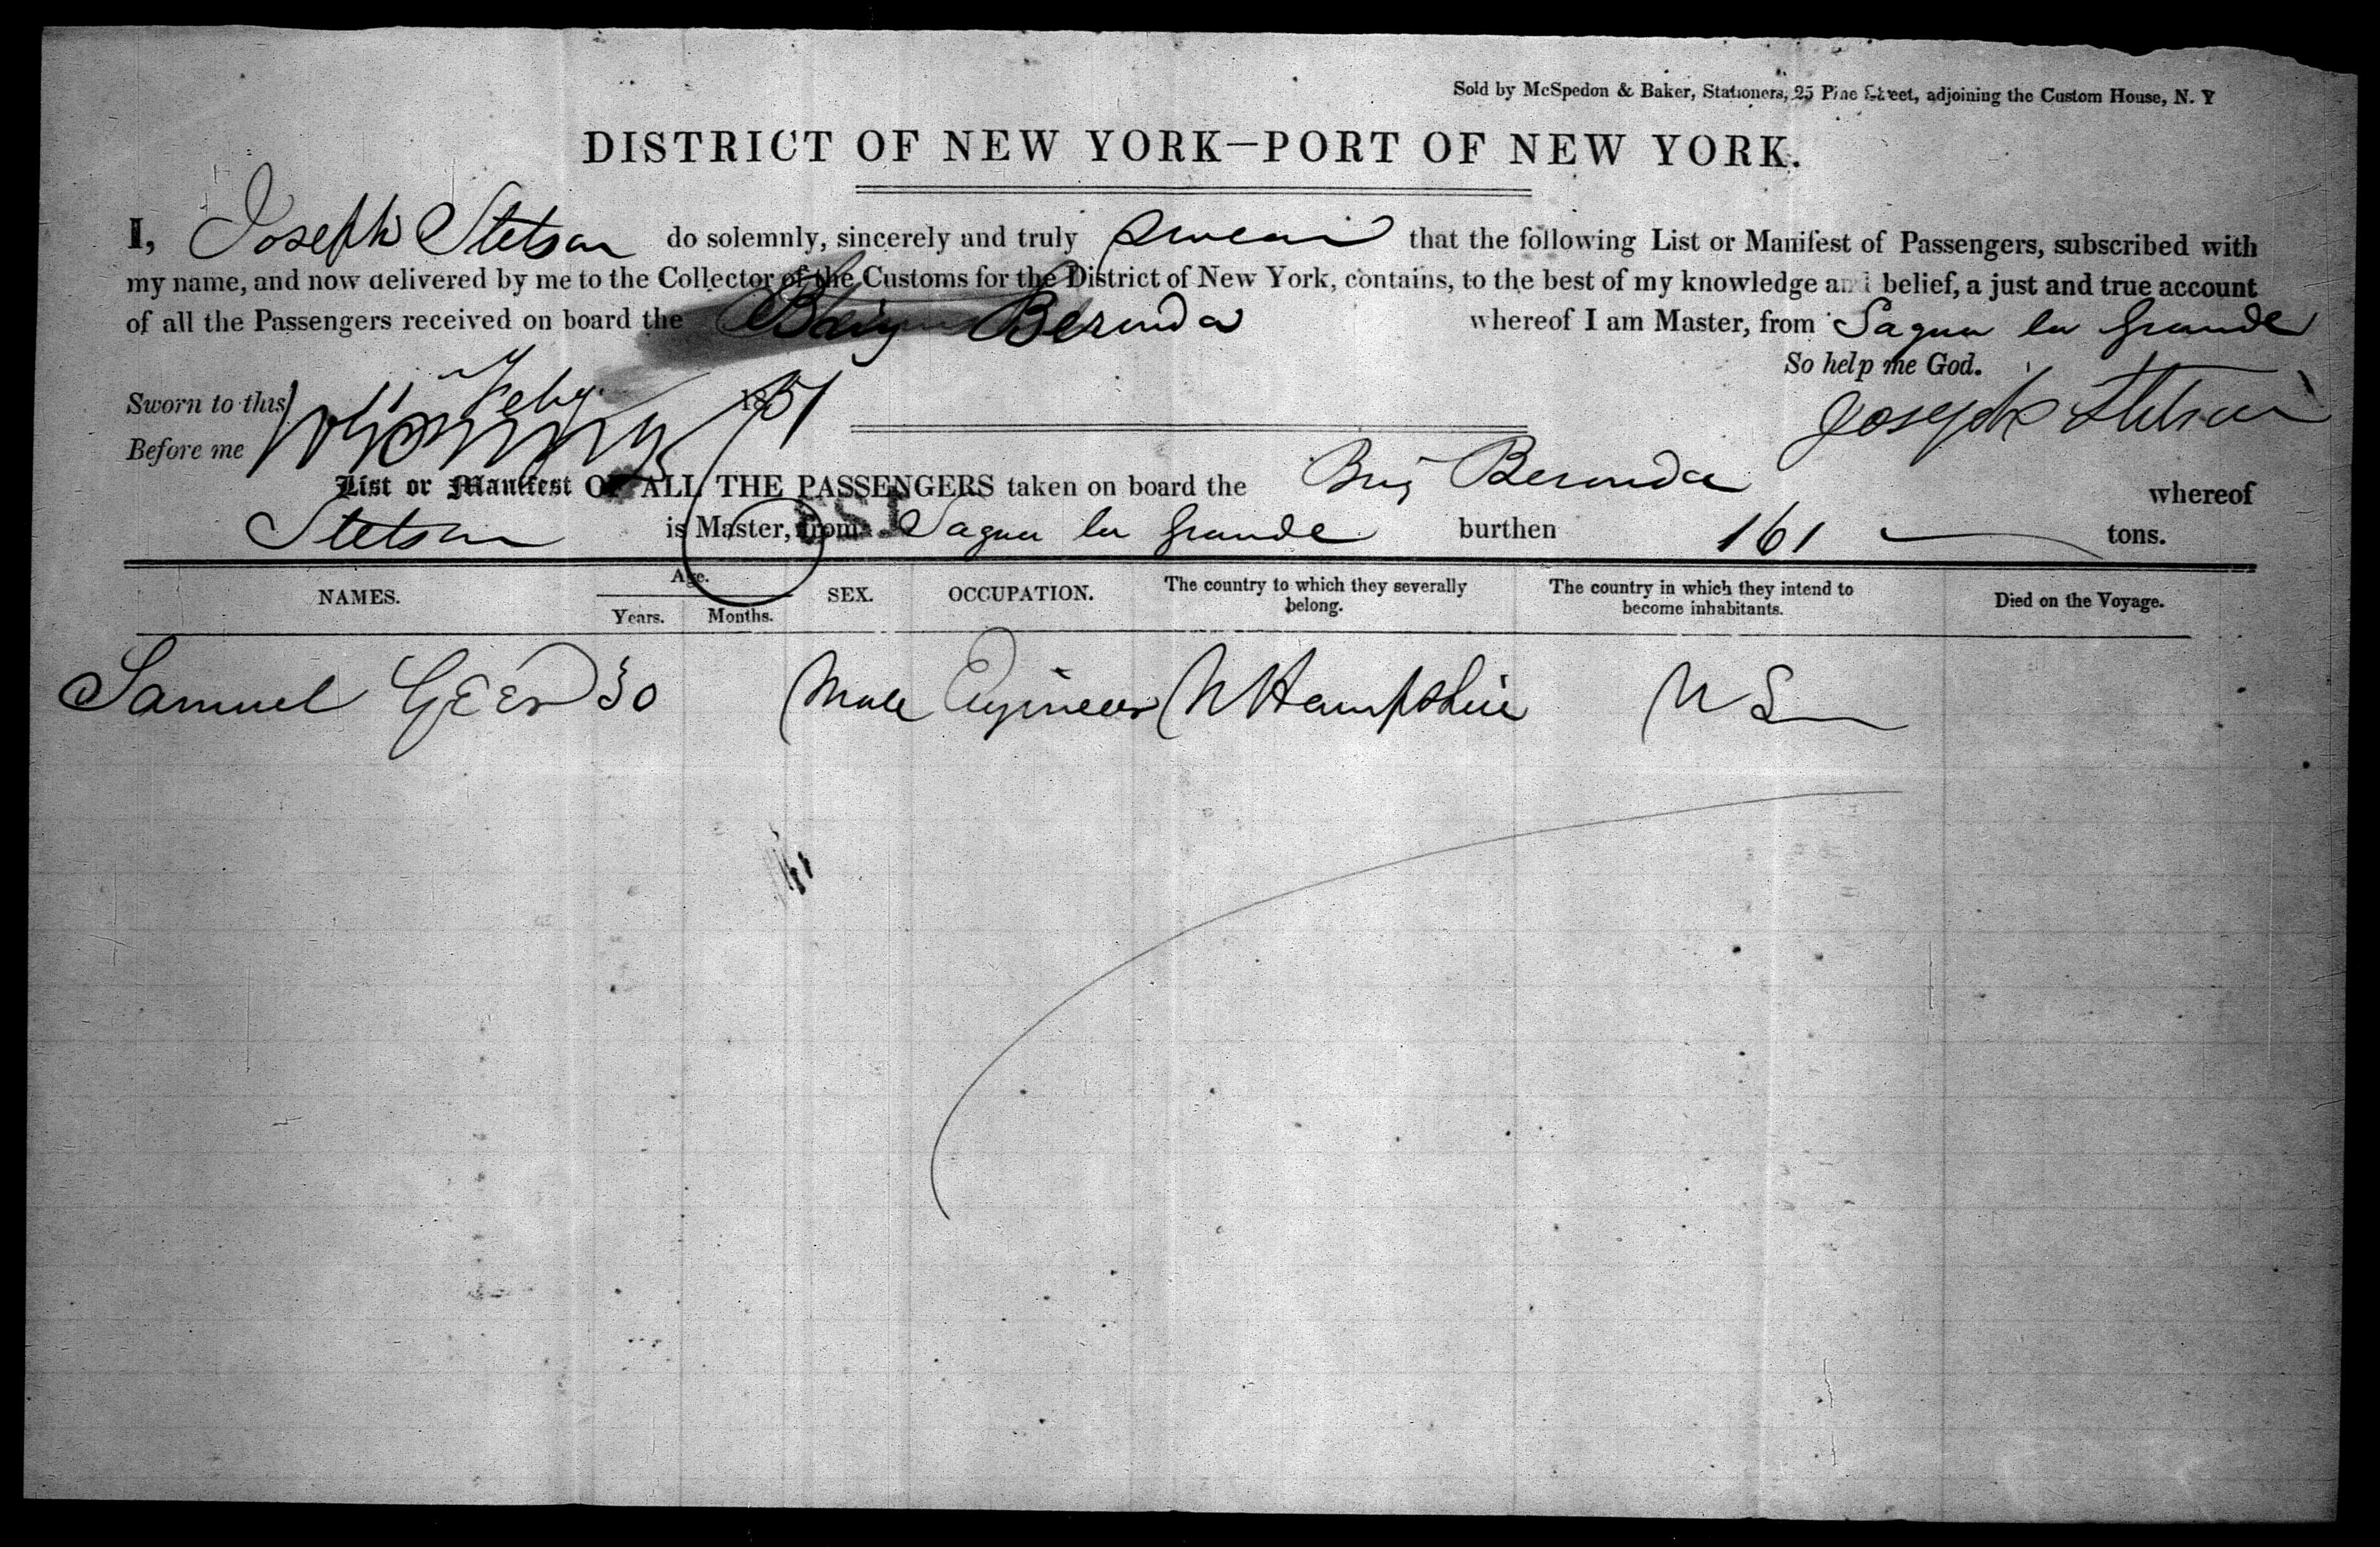 Sold by McSpedon & Baker, Stationers, 25 Pine Street, adjoining the Custom House, N. Y
DISTRICT OF NEW YORK—PORT OF NEW YORK.
I, Joseph Stetson do solemnly, sincerely and truly swear that the following List or Manifest of Passengers, subscribed with
my name, and now delivered by me to the Collector of the Customs for the District of New York, contains, to the best of my knowledge and belief, a just and true account
of all the Passengers received on board the Brig Berunda whereof I am Master, from Sagua la Grande
So help me God.
Sworn to this 11 Feby 1851
Joseph Stetson
Before me
List or Manifest OF ALL THE PASSENGERS taken on board the Brig Berunda whereof
Stetson is Master, from Sagua la Grande burthen 161 tons.
NAMES. Age. Years. Months. SEX. OCCUPATION. The country to which they severally belong. The country in which they intend to become inhabitants. Died on the Voyage.
Samuel GEEr 30 Male Engineer N Hampshire U S